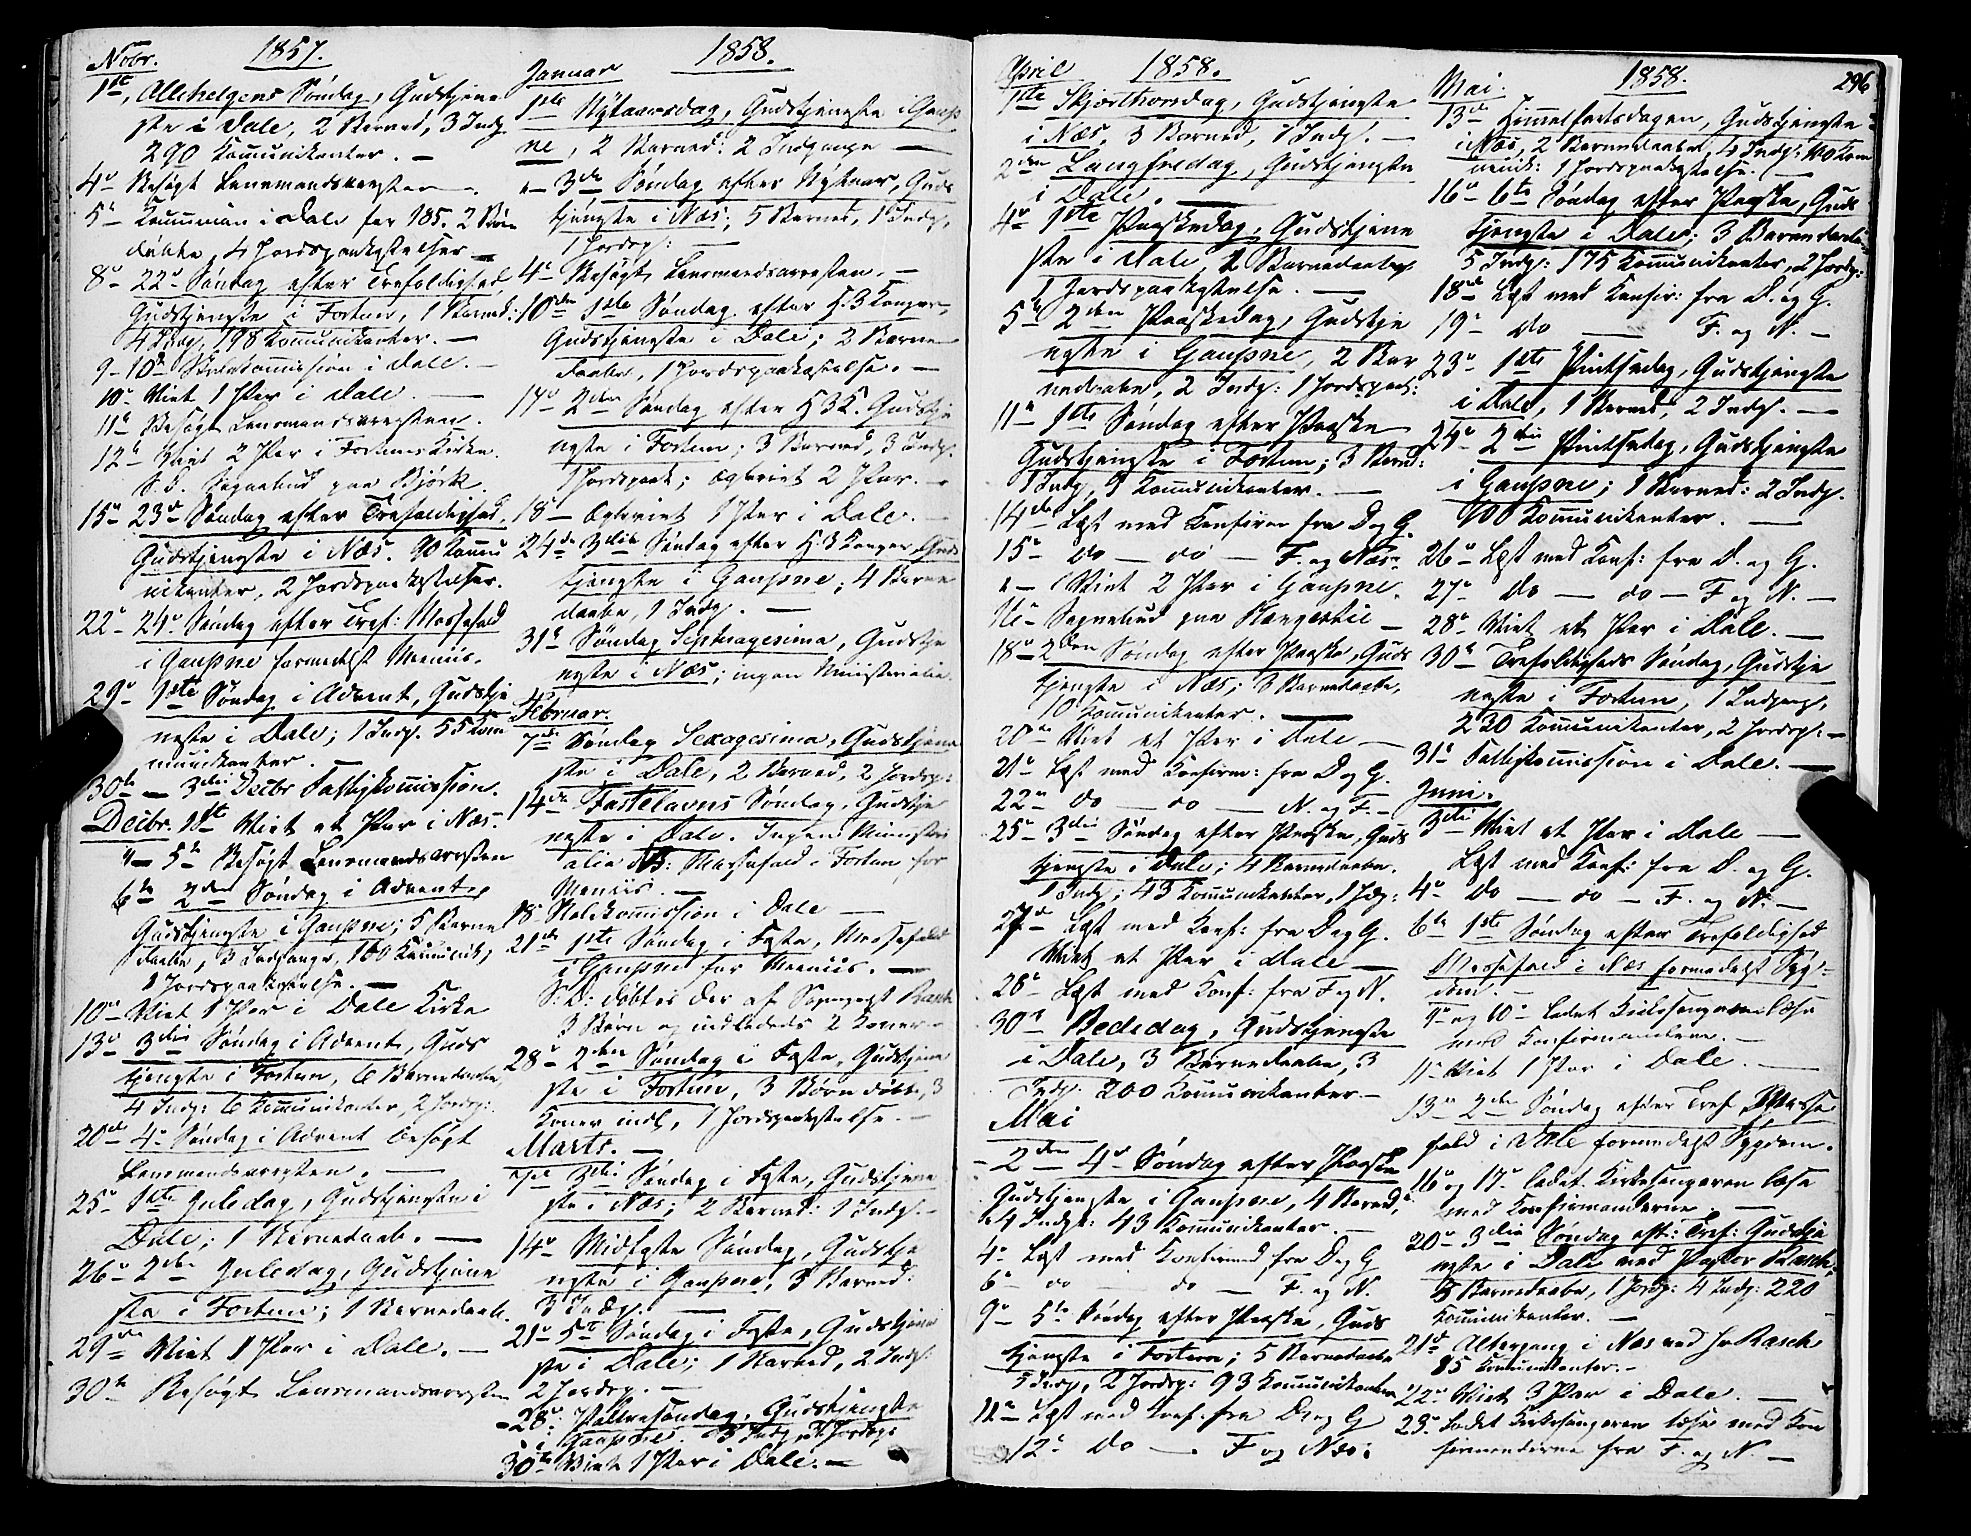 Nobr. 1857.
1ste, Allehelgens Søndag, Gudstjene-
ste i Dale, 2 Barned, 3 Indg.
290 Kommunikanter. —
4de Besøgt Lensmandsarresten —.
5te Kommun i Dale for 185. 2 Børn
døbte, 4 Jordspaakastelser —
8de 22de Søndag efter Trefoldighed
Gudstjeneste i Fortun, 1 Barned:
4 Indg, 198 Kommunikanter. —
9-10de Skolekommission i Dale. —
10de Viet 1 Par i Dale. —
11te Besøgt Lensmandsarresten.
12te Viet 2 Par i Fortuns Kirke.
S. D. Sognebud paa Bjørk.
15de 23de Søndag efter Trefoldighed,
Gudstjeneste i Næs. 90 Kommu
nikanter, 2 Jordspaakastelser.
22de 24de Søndag efter Tref: Messefald
i Gaupne formedelst Meniis.
29de 1ste Søndag i Advent, Gudstje
neste i Dale; 1 Indg. 55 Kom
munikanter. —
30te — 3die Decbr Fattigkommission.
Decbr. 1ste Viet et Par i Næs.
" — 5te Besøgt Lensmandsarresten
6te 2den Søndag i Advent,
Gudstjeneste i Gaupne; 5 Barne
daabe, 3 Indgange, 100 Kommunik,
2 Jordspaakastelse. —
10de Viet 1 Par i Dale Kirke
13de 3die Søndag i Advent, Guds
tjeneste i Fortun, 6 Barnedaabe,
4 Indg: 6 Kommunikanter, 2 Jordsp:
20de 4de Søndag i Advent besøgt
Lensmandsarresten. —
25de 1ste Juledag, Gudstjeneste i
Dale; 1 Barnedaab. —
26de 2den Juledag, Gudstjene
ste i Fortun; 1 Barnedaab.
29de Viet 1 Par i Dale. —
30te Besøgt Lensmandsarresten
Januar 1858.
1ste Nytaarsdag, Gudstjeneste i Gaup
ne, 2 Barned: 2 Indgange —
" — 3de Søndag efter Nytaar, Guds
tjeneste i Næs; 5 Barned, 1 Indg,
1 Jordsp: —
4de Besøgt Lensmandsarresten. —
10de 1ste Søndag efter H. 3 Konger,
Gudstjeneste i Dale; 2 Barne
daabe, 1 Jordspaakastelse. —
17de 2den Søndag efter H 3 K. Gudstje
neste i Fortun; 3 Barned, 3 Indg.
1 Jordspaak; Egteviet 2 Par. —
18 — Egteviet 1 Par i Dale. —
24de 3die Søndag efter H. 3 Konger, Guds
tjeneste i Gaupne; 4 Barne
daabe, 1 Indg. —
31te Søndag Septuagesima, Gudstje
neste i Næs; ingen Ministerialia
Februar.
7de Søndag Sexagesima, Gudstjene
ste i Dale, 2 Barned, 2 Jordsp:
14de Fastelavns Søndag, Gudstje
neste i Dale. Ingen Ministeri
alia NB: Messefald i Fortun, for
Meniis. —
18 Skolekommission i Dale —
21de 1ste Søndag i Faste, Messefald
i Gaupne for Meniis. —
S: D: døbtes der af Sognepræst Rasch
3 Børn og indlededs 2 Koner —
28de 2den Søndag i Faste, Gudstjene
ste i Fortun, 3 Børn døbte, 3
Koner indl, 1 Jordspaakastelse. —
Marts. —
7de 3die Søndag i Faste, Gudstjene
ste i Næs; 2 Barned: 1 Indg. —
14de Midfaste Søndag, Gudstje
neste i Gaupne, 3 Barned:
3 Indg. —
21de 5te Søndag i Faste, Gudstjene
ste i Dale; 1 Barned, 2 Indg:
2 Jordsp. —
28de: Palmesøndag, Gudstjeneste
i Gaupne. 3 Indg, Jordsp:
30te Viet 1 Par i Dale. —
April 1858.
1ste Skjærthorsdag, Gudstjeneste
i Næs, 3 Barned, 1 Indg. —
2den Langfredag, Gudstjeneste
i Dale. —
4de 1ste Paaskedag, Gudstjene
ste i Dale, 2 Barnedaabe,
1 Jordspaakastelse. —
5te 2den Paaskedag, Gudstje
neste i Gaupne, 2 Bar
nedaabe, 2 Indg: 1 Jordspaak:
11te 1ste Søndag efter Paaske
Gudstjeneste i Fortun; 3 Barned:
1 Indg, 9 Kommunikanter. —
14de Læst med Konfirm fra D og G.
15de do — do — F. og Næs.
" — Viet 2 Par i Gaupne.
16de Sognebud paa
18de 2den Søndag efter Paaske, Guds
tjeneste i Næs; 3 Barnedaabe,
10 Kommunikanter. —
20de Viet et Par i Dale —
21de Læst med Konfirm: fra D og G.
22de do — do — N. og F. —
25de 3die Søndag efter Paaske, Guds
tjeneste i Dale; 4 Barnedaabe.
1 Indg; 43 Kommunikanter, 1 Jdsp:
27de Læst med Konf: fra D og G.
Viet et Par i Dale —
28de Læst med Konf: fra F og N.
30te Bededag, Gudstjeneste
i Dale, 3 Barnedaabe, 3
Indg: 200 Kommunikanter. —
Mai
2den 4de Søndag efter Paaske
Gudstjeneste i Gaupne, 4 Barned,
4 Indg: 43 Kommunikanter. —
4de Læst med Konfirmd fra D og G
6te do do — F. og N.
9de 5te Søndag efter Paaske, Guds
tjeneste i Fortun; 5 Barnedaabe
5 Indg, 2 Jordsp: 93 Kommunikanter
11te Læst med Konf. fra D og G
12te do — F og Næs:
Mai. 1858. 296
13de Himmelfartsdagen, Gudstjeneste
i Næs, 2 Barnedaaber, 4 Indg: 110 Kom
munik: 1 Jordspaakastelse. —
16de 6te Søndag efter Paaske, Guds
tjeneste i Dale; 3 Barnedaabe
5 Indg: 175 Kommunikanter, 2 Jordsp:
18de Læst med Konfir: fra D. og G.
19de do — F. og N. —
23de 1ste Pintsedag, Gudstjeneste
i Dale, 1 Barned, 2 Indg. —
24de 2den Pintsedag, Gudstjeneste
i Gaupne; 1 Barned: 2 Indg.
100 Kommunikanter. —
26de Læst med Konf: fra D. og G.
27de do — do — F og N. —
28de Viet et Par i Dale. —
30te Trefoldigheds Søndag, Gudstje
neste i Fortun, 1 Indgang,
230 Kommunikanter, 2 Jordsp: —
31te Fattigkommission i Dale. —
Juni.
3die Viet et Par i Dale —
Læst med Konf: fra D. og G.
4de do — do — F. og N. —
6te 1ste Søndag efter Trefoldighed
Messefald i Næs formedelst Syg-
dom. —
9de og 10de ladet Kirkesangeren læse
med Konfirmanderne. —
11te Viet 1 Par i Dale. —
13de 2den Søndag efter Tref, Messe
fald i Dale formedelst Sygdom.
16de og 17de ladet Kirkesangeren læse
med Konfirmanderne. —
20de 3die Søndag eft: Tref: Gudstje
neste i Dale med Pastor Rasch;
3 Barnedaabe, 1 Jordsp: 4 Indg: 220
Kommunikanter. —
21de Altergang i Næs ved Hr Rasch
85 Kommunikanter. —
22de Viet 3 Par i Dale. —
23de Ladet Kirkesangeren læse med Kon
firmanderne fra F. og N. —